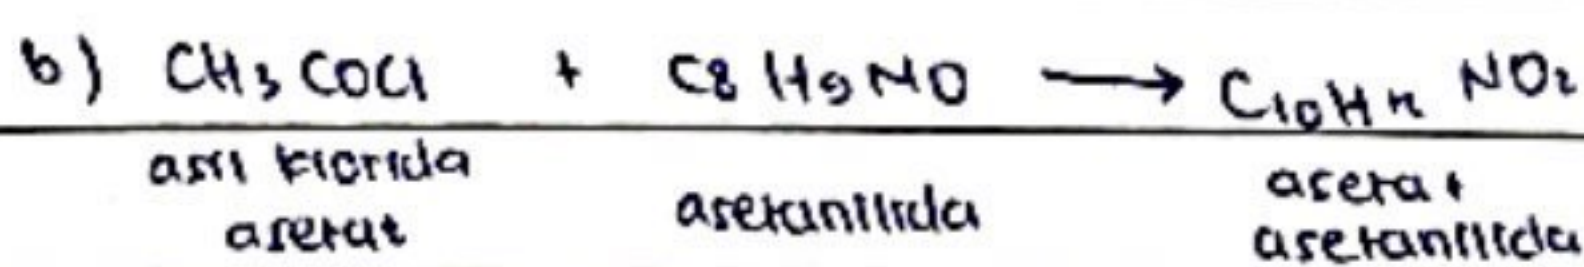 b) CH₃COCl + C₈H₉NO → C₁₀H₁₁NO₂
asil klorida asetanilida asetat
asetat asetanilida